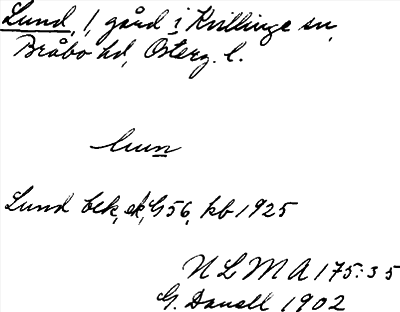 Lund, 1, gård i Kvillinge sn,
Bråbo hd, Österg. l.
lun
Lund bek, ek, G56, kb 1925
N L M A 175:35
G. Danell 1902